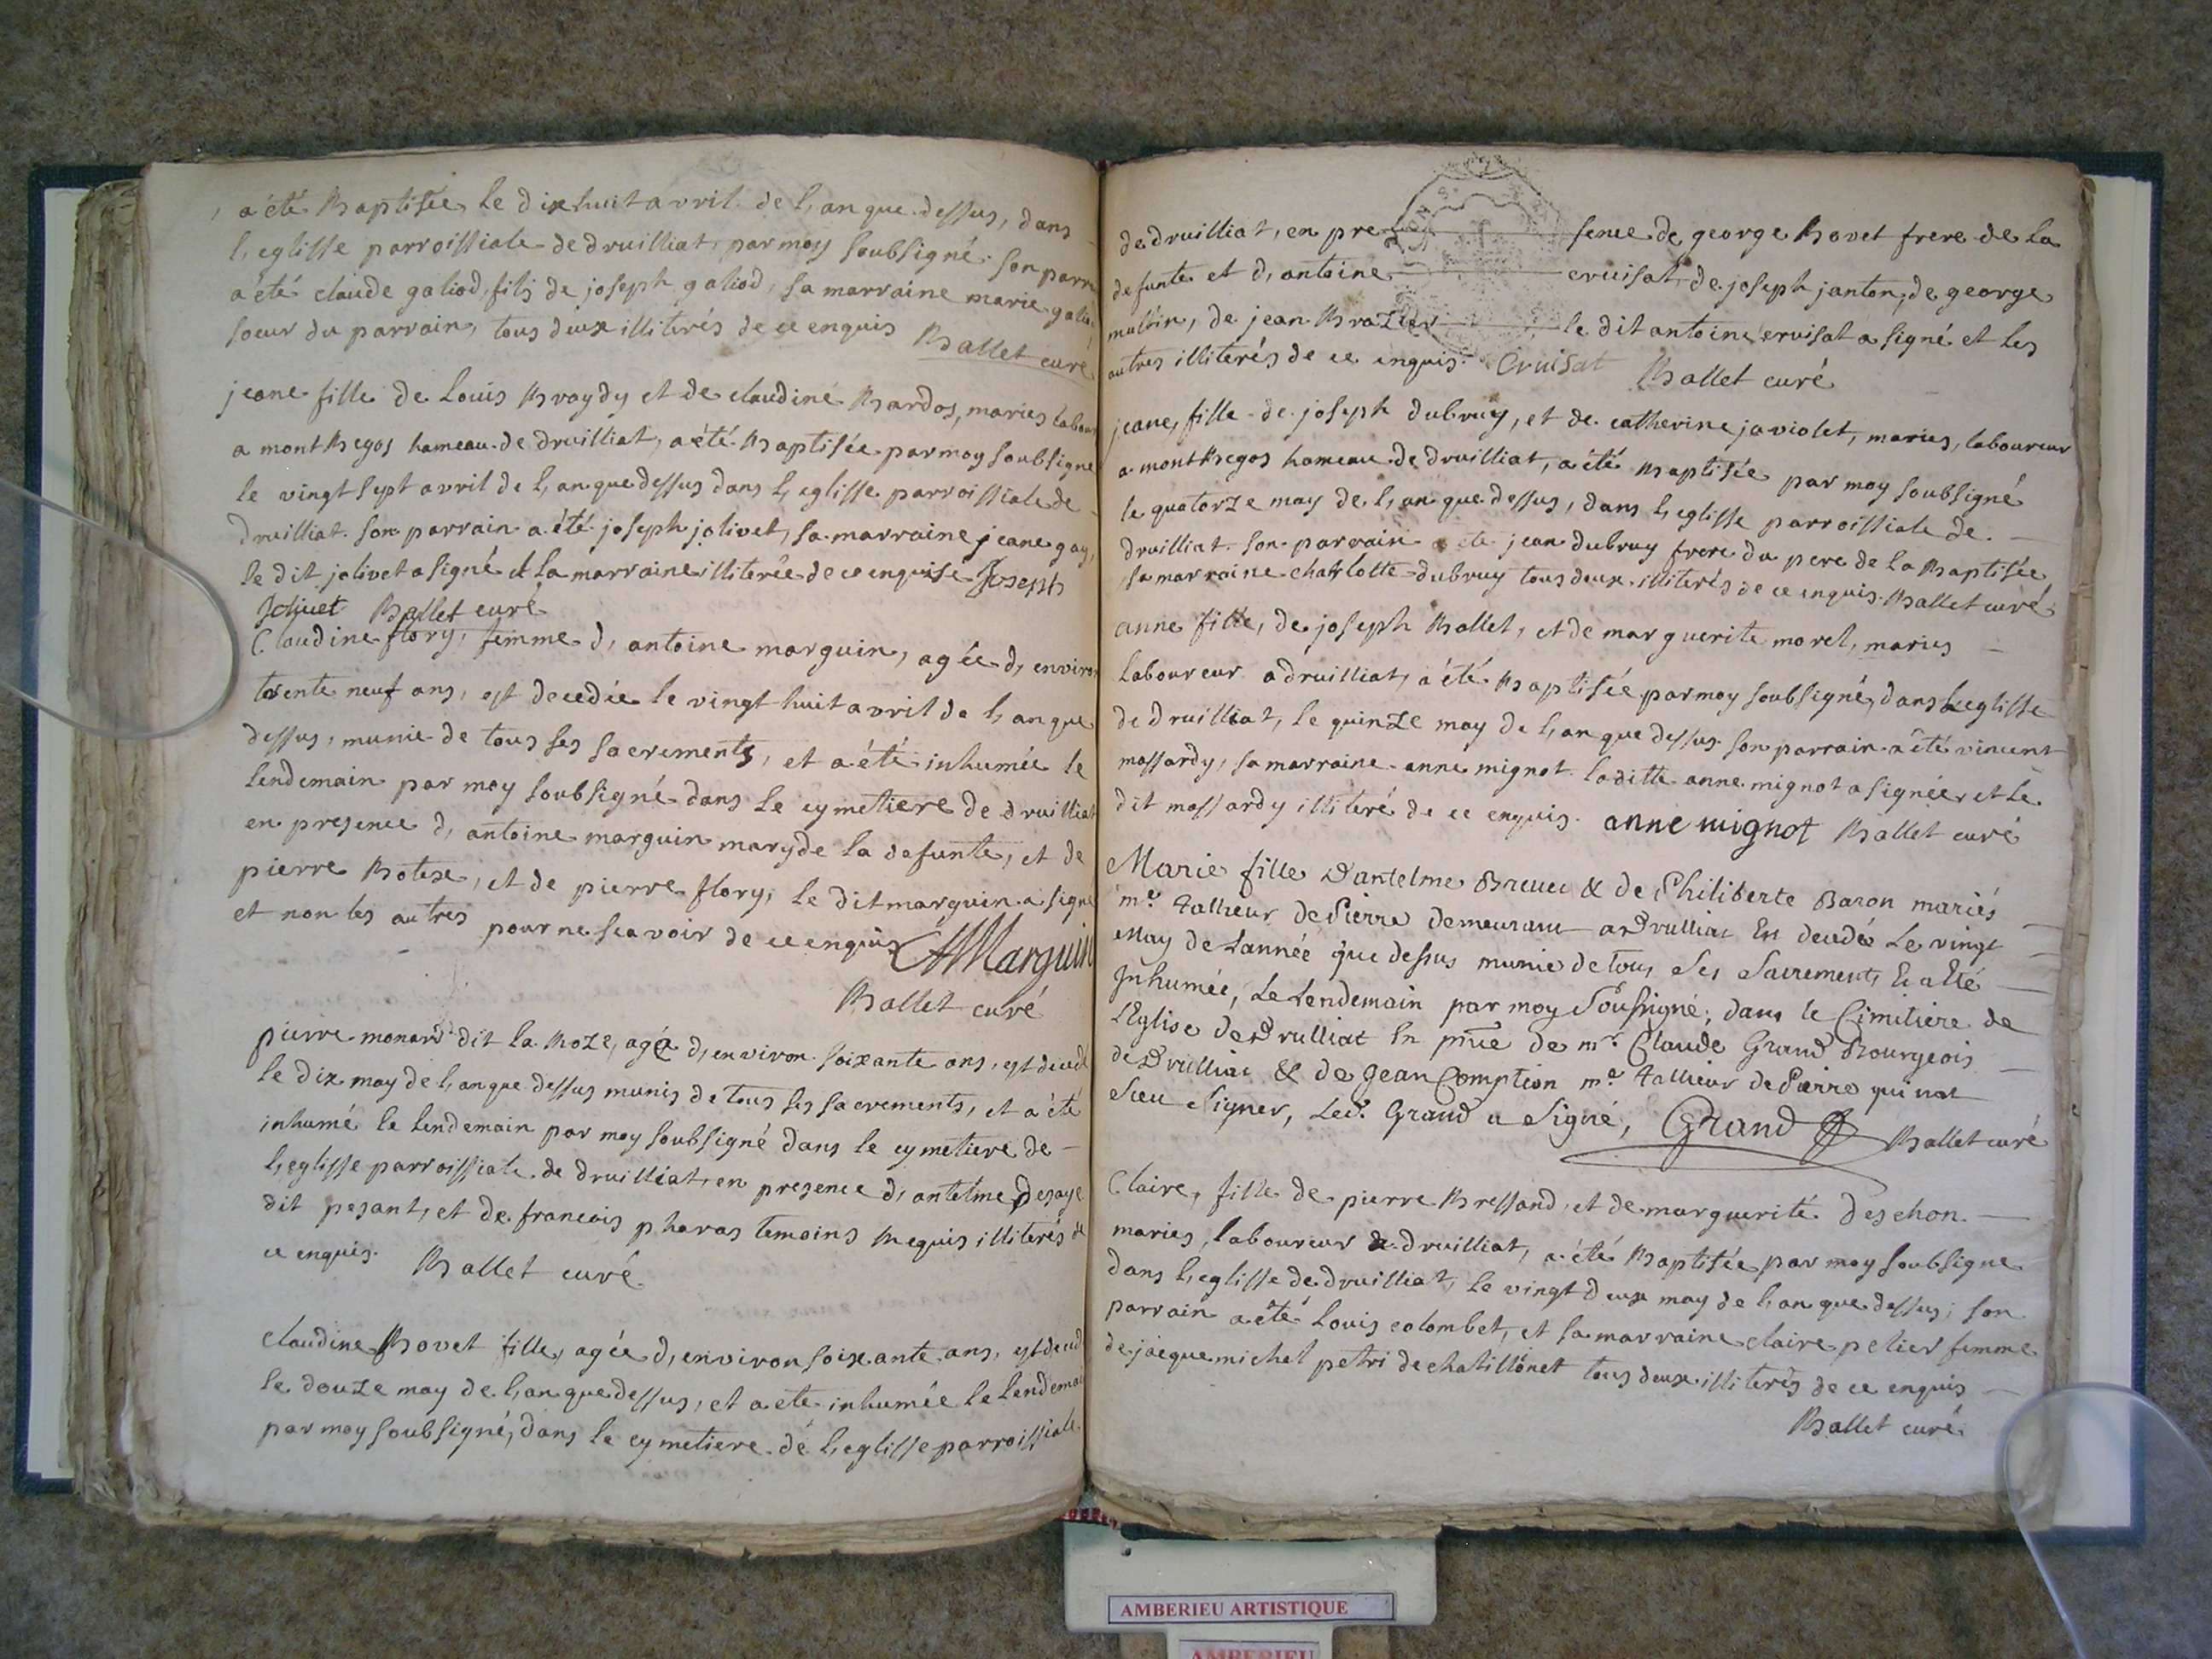 a été Baptisée le dixhuit avril de l,an que dessus, dans
l,eglisse parroissiale de druilliat, par moy soubsigné. son parr
a été claude galiod, fils de joseph galiod, sa marraine marie gali
soeur du parrain, tous deux illiterés de ce enquis Ballet curé
jeane fille de Louis Braydy et de claudine Bardos, maries labour
a mont Begos hameau de druilliat, a été Baptisée par moy soubsigné
le vingt sept avril de l,an que dessus dans l,eglisse parroissiale de
druilliat. son parrain a été joseph jolivet, sa marraine jeane gay,
le dit jolivet a signé et la marraine illiterée de ce enquise Joseph
Jolivet Ballet curé
Claudine flory, femme d, antoine marguin, agée d, environ
trente neuf ans, est decedée le vingt huit avril de l,an que
dessus, munie de tous ses sacrements, et a été inhumée le
lendemain par moy soubsigné dans le cymetiere de druilliat
en presence d, antoine marguin mary de la defunte, et de
pierre Botex, et de pierre flory, le dit marguin a signé
et non les autres pour ne scavoir de ce enquis AMarguin
Ballet curé
pierre monard dit la Roze, agé d, environ soixante ans, est deced
le dix may de l,an que dessus munis de tous ses sacrements, et a été
inhumé le lendemain par moy soubsigné dans le cymetiere de
l,eglisse parroissiale de druilliat, en presence d, antelme desaye
dit pesant, et de francois pharas temoins Requis illiterés de
ce enquis. Ballet curé
claudine Bovet fille, agée d, environ soixante ans, est deced
le douze may de l,an que dessus, et a été inhumée le lendemai
par moy soubsigné, dans le cymetiere de l,eglisse parroissiale
de druilliat, en pre sence de george Bovet frere de la
defunte et d, antoine cruisat, de joseph janton, de george
mulrin, de jean Brazier le dit antoine cruisat a signé et les
autres illiterés de ce enquis. Cruisat Ballet curé
jeane, fille de joseph dubruy, et de catherine javiolet, maries, laboureur
a mont Begos hameau de druilliat, a été Baptisée par moy soubsigné
le quatorze may de l,an que dessus, dans l,eglisse parroissiale de
druilliat. son parrain a été jean dubruy frere du pere de la Baptisée,
sa marraine charlotte dubruy tous deux illiterés de ce enquis. Ballet curé
anne fille, de joseph Ballet, et de marguerite morel, maries
laboureur a druilliat, a été Baptisée par moy soubsigné, dans l'eglisse
de druilliat, le quinze may de l,an que dessus. son parrain a été vincent
massardy, sa marraine anne mignot. laditte anne mignot a signée, et le
dit massardy illiteré de ce enquis. anne mignot Ballet curé
Marie fille Dantelme Breuer & de Philiberte Baron mariés
me. Tallieur de Pierre demeurant a Drulliat Est decedée Le vingt
May de L'année que dessus munie de tous Ses Sacrements Et a Eté
Inhumée, Le Lendemain par moy Soussigné, dans le Cimitiere de
L'Eglise de Drulliat En pnce de mr. Claude Grand Bourgeois
de Drulliat & de Jean Comption me. Tallieur de Pierre qui n'ot
Sceu Signer, Led. Grand a Signé, Grand Ballet curé
Claire, fille de pierre Bressand, et de marguerite deschon
maries, laboureur a druilliat, a été Baptisée par moy soubsigne
dans l,eglisse de druilliat, le vingt deux may de l,an que dessus; son
parrain a été Louis colombet, et sa marraine claire petier femme
de jacque michel petri de chatillonet tous deux illiterés de ce enquis
Ballet curé.
AMBERIEU ARTISTIQUE
AMBERIEU